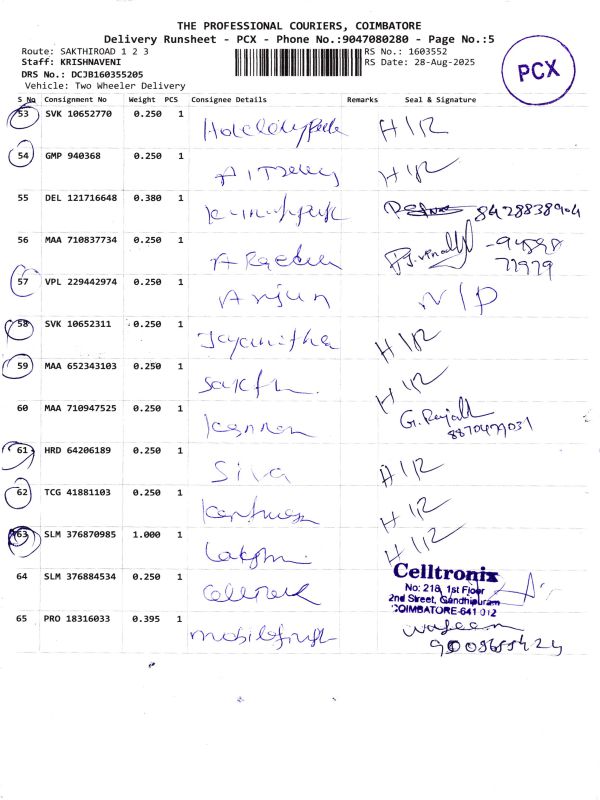 THE PROFESSIONAL COURIERS, COIMBATORE
Delivery Runsheet - PCX - Phone No.:9047080280 - Page No.:5
Route: SAKTHIROAD 1 2 3
RS No.: 1603552
Staff: KRISHNAVENI
RS Date: 28-Aug-2025
DRS No.: DCJB160355205
Vehicle: Two Wheeler Delivery
PCX
S No Consignment No Weight PCS Consignee Details Remarks Seal & Signature
53 SVK 10652770 0.250 1 H/R
54 GMP 940368 0.250 1 H/R
55 DEL 121716648 0.380 1
56 MAA 710837734 0.250 1
57 VPL 229442974 0.250 1 Arjun N/P
58 SVK 10652311 0.250 1 Jayanitha H/R
59 MAA 652343103 0.250 1 H/R
60 MAA 710947525 0.250 1 Kannan
8870479031
61 HRD 64206189 0.250 1 Siva H/R
62 TCG 41881103 0.250 1 H/R
63 SLM 376870985 1.000 1 Lakshmi H/R
64 SLM 376884534 0.250 1
Celltronix
No: 218, 1st Floor
2nd Street, Gandhipuram
COIMBATORE-641 012
65 PRO 18316033 0.395 1